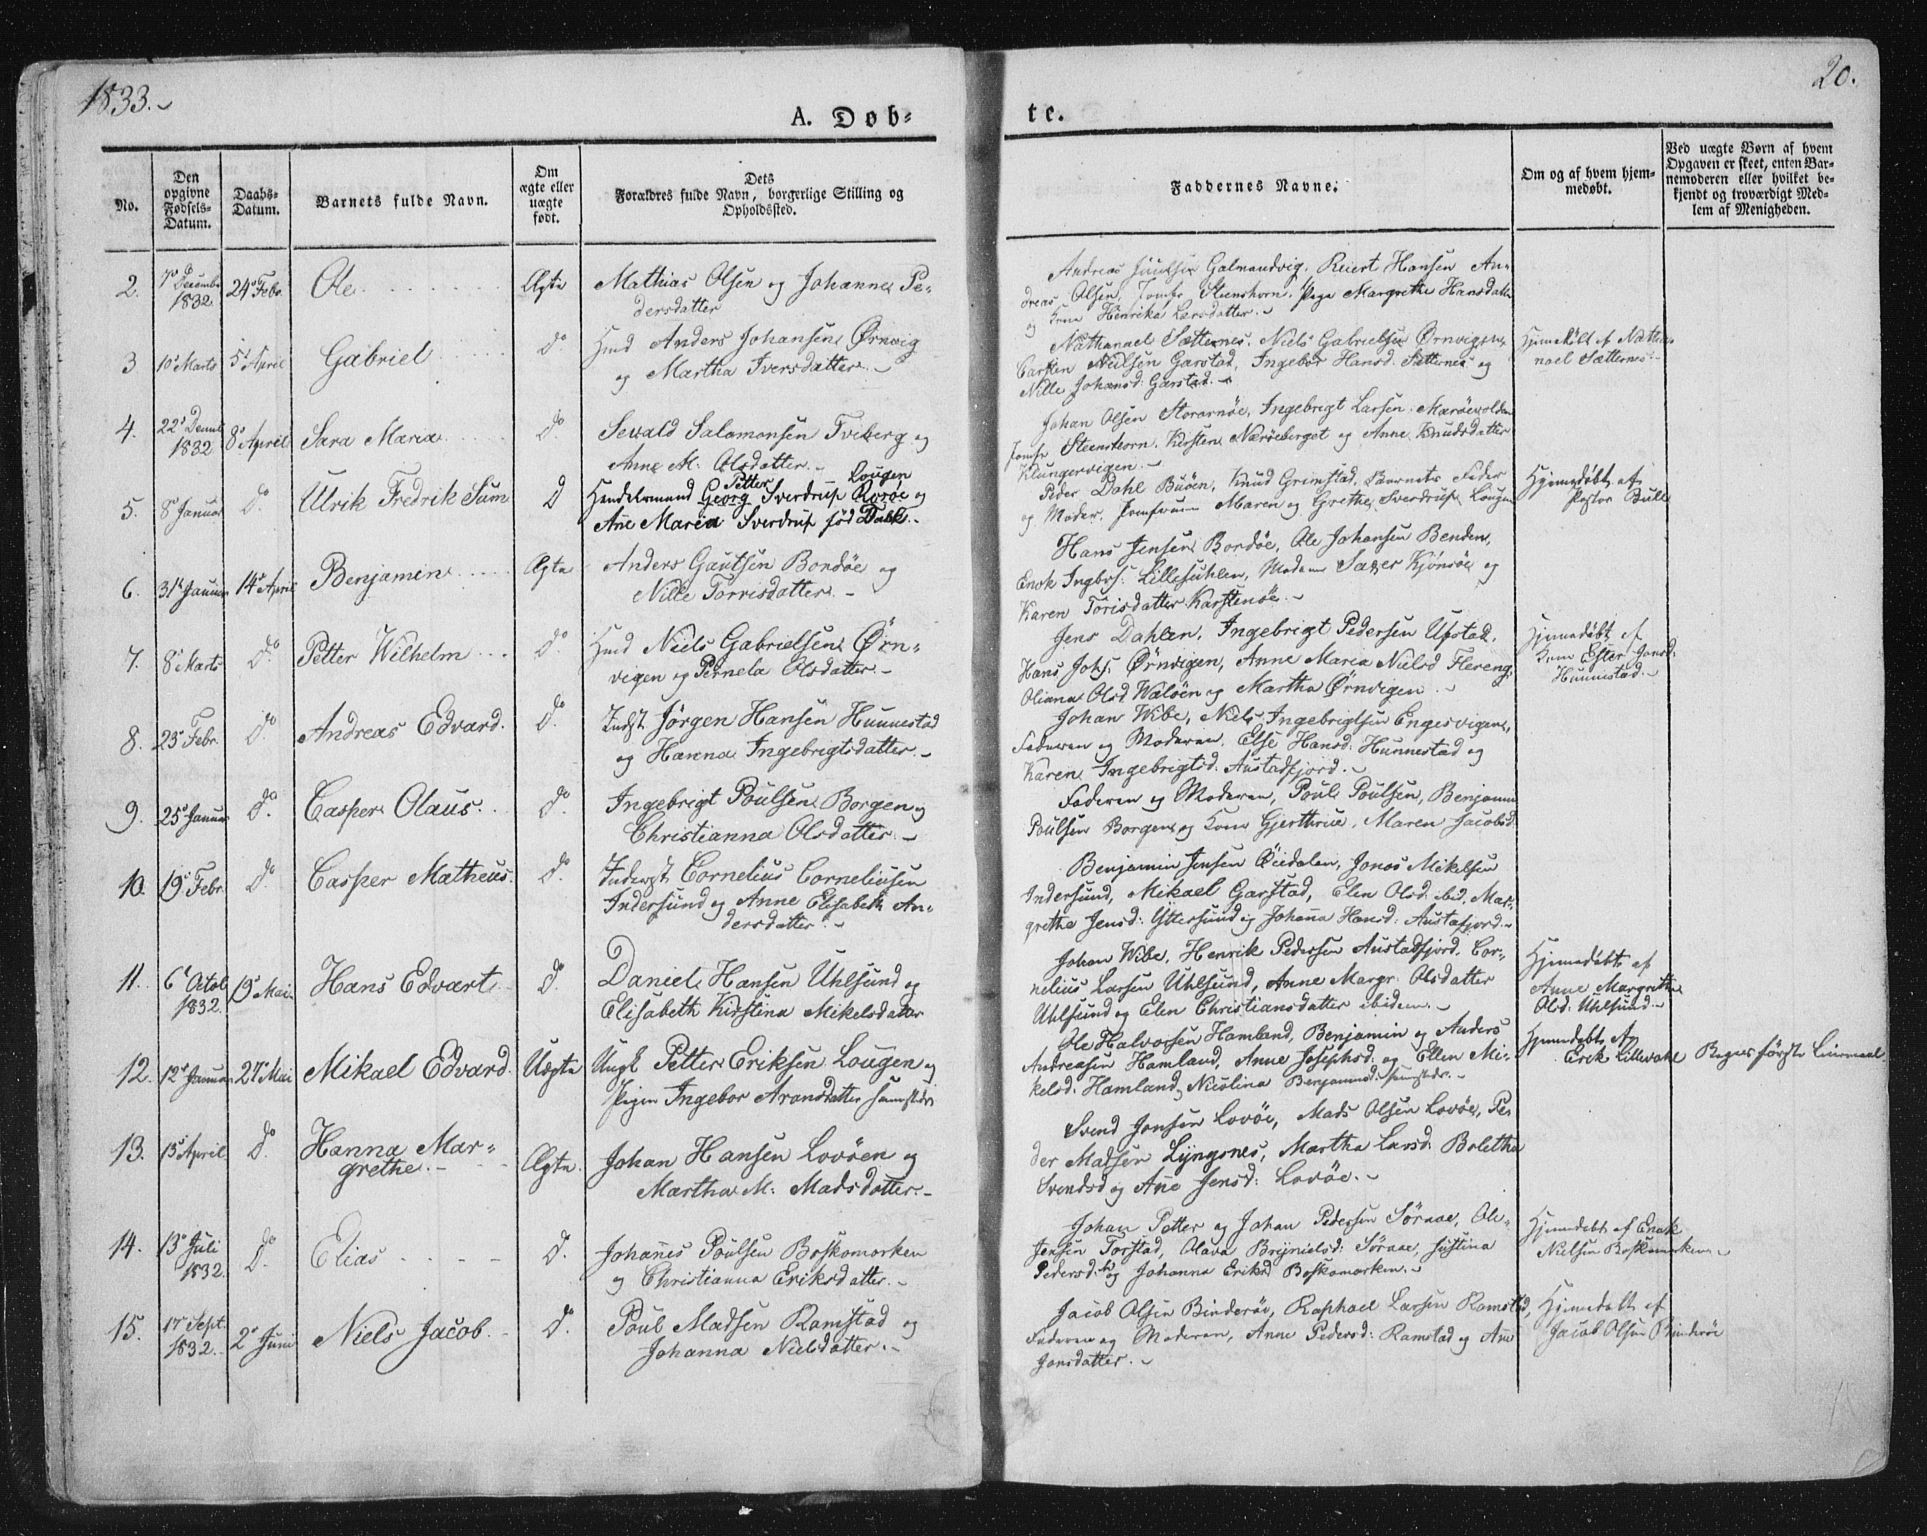 1833.
20.
A. Døb-
te.
No.
Den opgivne Fødsels-Datum.
Daabs-Datum.
Barnets fulde Navn.
Om ægte eller uægte født.
Dets Forældres fulde Navn, borgerlige Stilling og Opholdssted.
Faddernes Navne.
Om og af hvem hjem-medøbt.
Ved uægte Børn af hvem Opgaven er skeet, enten Bar-nemoderen eller hvilket be-kjendt og troværdigt Med-lem af Menigheden.
2. 7de Decembr 1832 24de Febr. Ole Ægte Mathias Olsen og Johanna Pe-
dersdatter
Galmandvig, Reiert Hansen An-
dreas Olsen, Jomfr Steenshorn, Pige Margrethe Hansdatter
og Kone Henrika Larsdatter.
3 10de Marts 5te April Gabriel Do Hmd Anders Johansen Ørnvig
og Martha Iversdatter.
Nathanael Sætternes, Niels Gabrielsen Ørnvigen,
Carsten Neilsen Garstad, Ingebor Hansd. Sætternes og
Nille Johansd: Garstad.
Hjemedøbt af Natha-
nael Sætternes
4. 22de Decembr 1832 8de April Sara Maria Do Sewald Salamonsen Tviberg og
Anne M. Olsdatter.
Johan Olsen Storarnøe, Ingebrigt Larsen Marøevolden
Jomfr Steenshorn, Kirsten Nærøeberget og Anne Knudsdatter
Klungervigen.
5. 8de Januar Do Ulrik Fredrik Sum D Handelsmand Georg Petter Sverdrup Lougen Rorøe og
Ane Maria Sverdrup fød Dahl.
Peder Dahl Buøen, Knud Grimstad, Baarnets Fader
og Moder, Jomfruerne Maren og Grethe Sverdrup Lougen
Hjemedøbt af
Pastor Bull
6. 31te Januar 14de April Benjamin Ægte Anders Gautsen Bordøe og
Nille Torrisdatter.
Hans Jensen Bordøe, Ole Johansen Benden,
Enok Ingbrs: Lillesuhlen, Madame Kjønsøe og
Karen Torisdatter Karstenøe.
7. 8de Marts Do Petter Wilhelm Do Hmd Niels Gabrielsen Ørn-
vigen og Pernela Olsdatter.
Jens Dahlen, Ingebrigt Pedersen Ufstad,
Hans Johs: Ørnvigen, Anne Maria Nielsd Flereng
Oliana Olsd Waløen og Martha Ørnvigen.
Hjemedøbt af
Kone Ester Jonsd:
Hunnestad.
8. 23de Febr. Do Andreas Edvard. Do Inderst Jørgen Hansen Hunnestad
og Hanna Ingebrigtsdatter.
Johan Wibe, Niels Ingebrigtsen Engesvigen,
Faderen og Moderen, Else Hansd: Hunnestad og
Karen Ingebrigtsd. Austadfjord.
9. 25de Januar Do Casper Olaus. Do Ingebrigt Poulsen Borgen og
Christianna Olsdatter.
Faderen og Moderen, Poul Poulsen, Benjamin
Poulsen Borgen og Kone Gjerthrue, Maren Jacobsd
10. 19de Febr. Do Casper Matheus. Do Inderst Cornelius Corneliusen
Indersund og Anne Elisabeth An-
dersdatter.
Benjamin Jensen Øiedalen, Jonas Mikelsen
Indersund, Mikael Garstad, Elen Olsd ibid, Mar-
grethe Jensd: Yttersund og Johanna Hansd: Austafjord.
11. 6te Octob 1832. 19de Mai Hans Edvart Do Daniel Hansen Uhlsund og
Elisabeth Kirstina Mikelsdatter
Johan Wibe, Henrik Pedersen Austadfjord, Cor-
nelius Larsen Uhlsund, Anne Margr: Olsdatter
Uhlsund og Elen Christiansdatter ibidem.
Hjemedøbt af
Anne Margrethe
Olsd: Uhlsund.
12. 12te Januar 27de Mai Mikael Edvard. Uægte Ungk Petter Eriksen Lougen og
Pigen Ingebor Arandsdatter samstedes
Ole Halvorsen Hamland, Benjamin og Anders
Andreasen Hamland, Anne Josephsd: og Ellen Mi-
kelsd. Hamland, Nicolina Benjaminsd: samstedes.
Hjemedøbt af
Erik Lillevahl
Begges første Leiermaal
13. 13de April Do Hanna Mar-
grethe. Ægte. Johan Hansen Lovøen og
Martha M. Madsdatter.
Svend Jonsen Lovøe, Mads Olsen Lovøe, Pe-
der Madsen Lyngsnes, Martha Larsd: Boletha
Svendsd og Ane Jensd: Lovøe.
14. 13de Juli 1832. Do Elias Do. Johannes Poulsen Boskomorken
og Christianna Eriksdatter.
Johan Petter og Johan Pedersen Sørnae, Ole
Jensen Torstad, Olava Brynielsd: Sørnae, Justina
Pedersd: og Johanna Eriksd Boskomorken.
Hjemedøbt af Enok
Nielsen Boskomorken
15. 17de Sept. 1832. 2den Juni Niels Jacob. Do. Poul Madsen Ramstad og
Johanna Nielsdatter.
Jacob Olsen Binderøe, Raphael Larsen Ramstad,
Faderen og Moderen, Anne Pedersd: Ramstad og Ane
Jonsdatter.
Hjemedøbt af
Jacob Olsen Binderøe